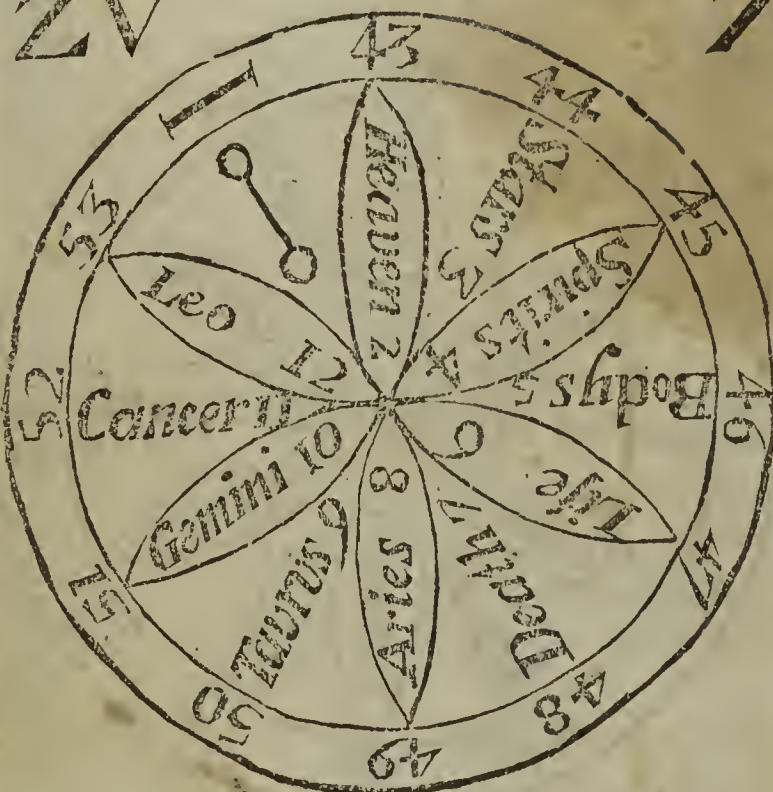 I
43
44
45
46
47
48
49
50
51
52
53
Heauen 2
Stars 3
Spirits 4
Bodys 5
Life 6
Death 7
Aries 8
Taurus 9
Gemini 10
Cancer 11
Leo 12